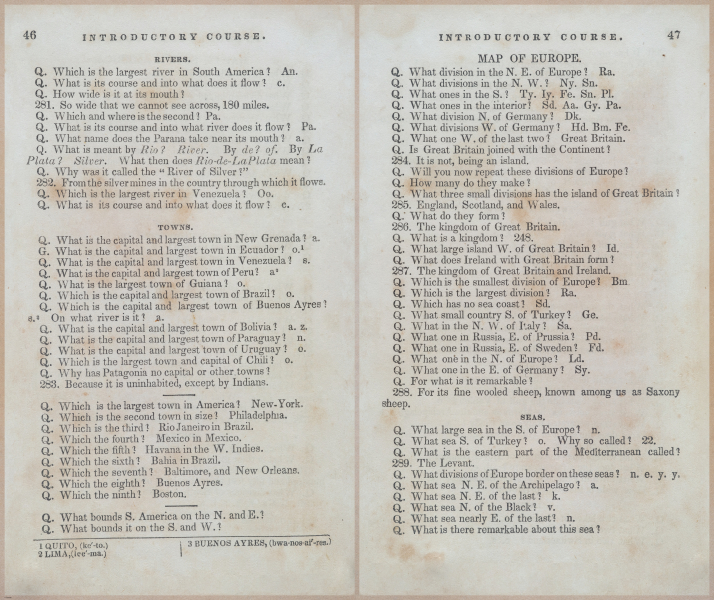 46 INTRODUCTORY COURSE.
RIVERS.
Q. Which is the largest river in South America? An.
Q. What is its course and into what does it flow? c.
Q. How wide is it at its mouth?
281. So wide that we cannot see across, 180 miles.
Q. Which and where is the second? Pa.
Q. What is its course and into what river does it flow? Pa.
Q. What name does the Parana take near its mouth? a.
Q. What is meant by Rio? River. By de? of. By La
Plata? Silver. What then does Rio-de-La Plata mean?
Q. Why was it called the "River of Silver?"
282. From the silver mines in the country through which it flows.
Q. Which is the largest river in Venezuela? Oo.
Q. What is its course and into what does it flow? e.
TOWNS.
Q. What is the capital and largest town in New Grenada? a.
G. What is the capital and largest town in Ecuador? o.¹
Q. What is the capital and largest town in Venezuela? s.
Q. What is the capital and largest town of Peru? a²
Q. What is the largest town of Guiana? o.
Q. Which is the capital and largest town of Brazil? o.
Q. Which is the capital and largest town of Buenos Ayres?
s.³ On what river is it? a.
Q. What is the capital and largest town of Bolivia? a. z.
Q. What is the capital and largest town of Paraguay? n.
Q. What is the capital and largest town of Uruguay? o.
Q. Which is the largest town and capital of Chili? o.
Q. Why has Patagonia no capital or other towns?
283. Because it is uninhabited, except by Indians.
Q. Which is the largest town in America? New-York.
Q. Which is the second town in size? Philadelphia.
Q. Which is the third? Rio Janeiro in Brazil.
Q. Which the fourth? Mexico in Mexico.
Q. Which the fifth? Havana in the W. Indies.
Q. Which the sixth? Bahia in Brazil.
Q. Which the seventh? Baltimore, and New Orleans.
Q. Which the eighth? Buenos Ayres.
Q. Which the ninth? Boston.
Q. What bounds S. America on the N. and E.?
Q. What bounds it on the S. and W.?
1 QUITO, (ke'-to.)
2 LIMA, (lee'-ma.)
3 BUENOS AYRES, (bwa-nos-ai'-res.)
INTRODUCTORY COURSE. 47
MAP OF EUROPE.
Q. What division in the N. E. of Europe? Ra.
Q. What divisions in the N. W.? Ny. Sn.
Q. What ones in the S.? Ty. Iy. Fe. Sn. Pl.
Q. What ones in the interior? Sd. Aa. Gy. Pa.
Q. What division N. of Germany? Dk.
Q. What divisions W. of Germany? Hd. Bm. Fe.
Q. What one W. of the last two? Great Britain.
Q. Is Great Britain joined with the Continent?
284. It is not, being an island.
Q. Will you now repeat these divisions of Europe?
Q. How many do they make?
Q. What three small divisions has the island of Great Britain?
285. England, Scotland, and Wales.
Q. What do they form?
286. The kingdom of Great Britain.
Q. What is a kingdom? 248.
Q. What large island W. of Great Britain? Id.
Q. What does Ireland with Great Britain form?
287. The kingdom of Great Britain and Ireland.
Q. Which is the smallest division of Europe? Bm
Q. Which is the largest division? Ra.
Q. Which has no sea coast? Sd.
Q. What small country S. of Turkey? Ge.
Q. What in the N. W. of Italy? Sa.
Q. What one in Russia, E. of Prussia? Pd.
Q. What one in Russia, E. of Sweden? Fd.
Q. What one in the N. of Europe? Ld.
Q. What one in the E. of Germany? Sy.
Q. For what is it remarkable?
288. For its fine wooled sheep, known among us as Saxony
sheep.
SEAS.
Q. What large sea in the S. of Europe? n.
Q. What sea S. of Turkey? o. Why so called? 22.
Q. What is the eastern part of the Mediterranean called?
289. The Levant.
Q. What divisions of Europe border on these seas? n. e. y. y.
Q. What sea N. E. of the Archipelago? a.
Q. What sea N. E. of the last? k.
Q. What sea N. of the Black? v.
Q. What sea nearly E. of the last? n.
Q. What is there remarkable about this sea?